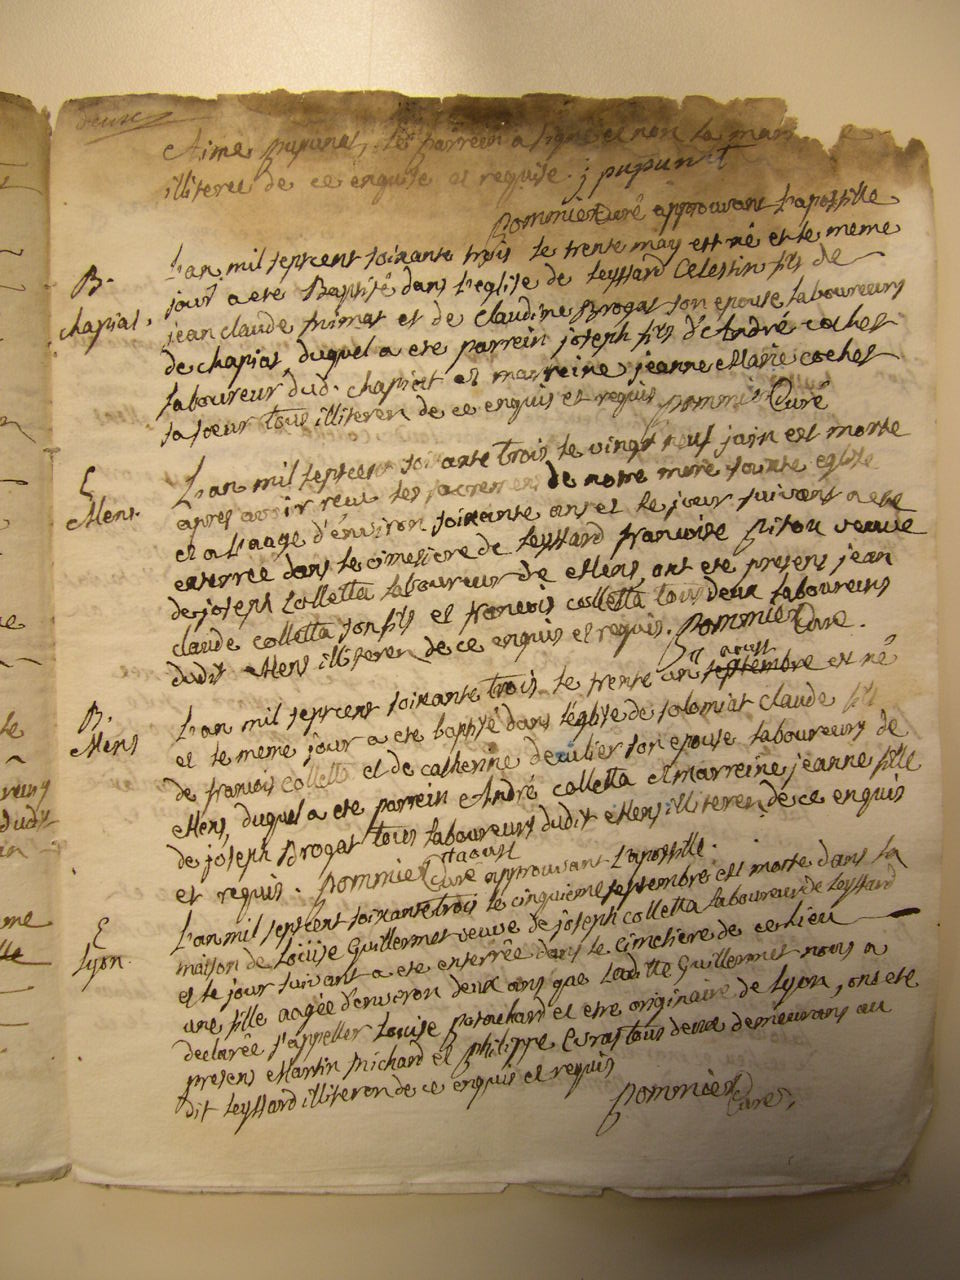 deux
Aimé pupunat, le parrein a signé et non la mar
illiteree de ce enquise et requise. j pupunat
pommier Curé approuvant l'apostille
B.
chapiat.
L'an mil septcent soixante trois le trente may est né et le meme
jour a eté Baptisé dans l'eglise de leyssard Celestin fils de
jean claude primat et de claudine Brogat son epouse laboureurs
de chapiat, duquel a ete parrein joseph fils d'André cochet
laboureur dud. chapiat et marreine jeanne Marie cochet
sa soeur tous illiteren de ce enquis et requis pommier Curé
E
Mens.
L'an mil septcent soixante trois le vingt neuf juin est morte
apres avoir reçu les sacremens de notre mere sainte eglise
et a l'aage d'environ soixante ans et le jour suivant a ete
enterrée dans le cimetiere de leyssard francoise pitou veuve
de joseph Colletta laboureur de Mens, ont ete presens jean
claude colletta son fils et francois colletta tous deux laboureurs
dudit Mens illiteren de ce enquis et requis. pommier Curé.
B.
Mens
aoust
L'an mil septcent soixante trois le trente un septembre est né
et le meme jour a ete baptisé dans l'eglise de solomiat claude fils
de francois colletta et de catherine decuilier son epouse laboureurs de
Mens, duquel a ete parrein André colletta et marreine jeanne fille
de joseph Brogat tous laboureurs dudit Mens illiteren de ce enquis
et requis. pommier Curé approuvant l'apostille.
d'aoust
E
Lyon.
L'an mil septcent soixante trois le cinquieme septembre est morte dans la
maison de Louise Guillermet veuve de joseph colletta laboureur de leyssard
et le jour suivant a ete enterrée dans le cimetiere de ce lieu
une fille aagée d'environ deux ans que ladite Guillermet nous a
declarée s'appeller Louise patouchard et etre originaire de Lyon, ont ete
presens Martin Michard et philippe Evras tous deux demeurans au
dit leyssard illiteren de ce enquis et requis
pommier Curé.